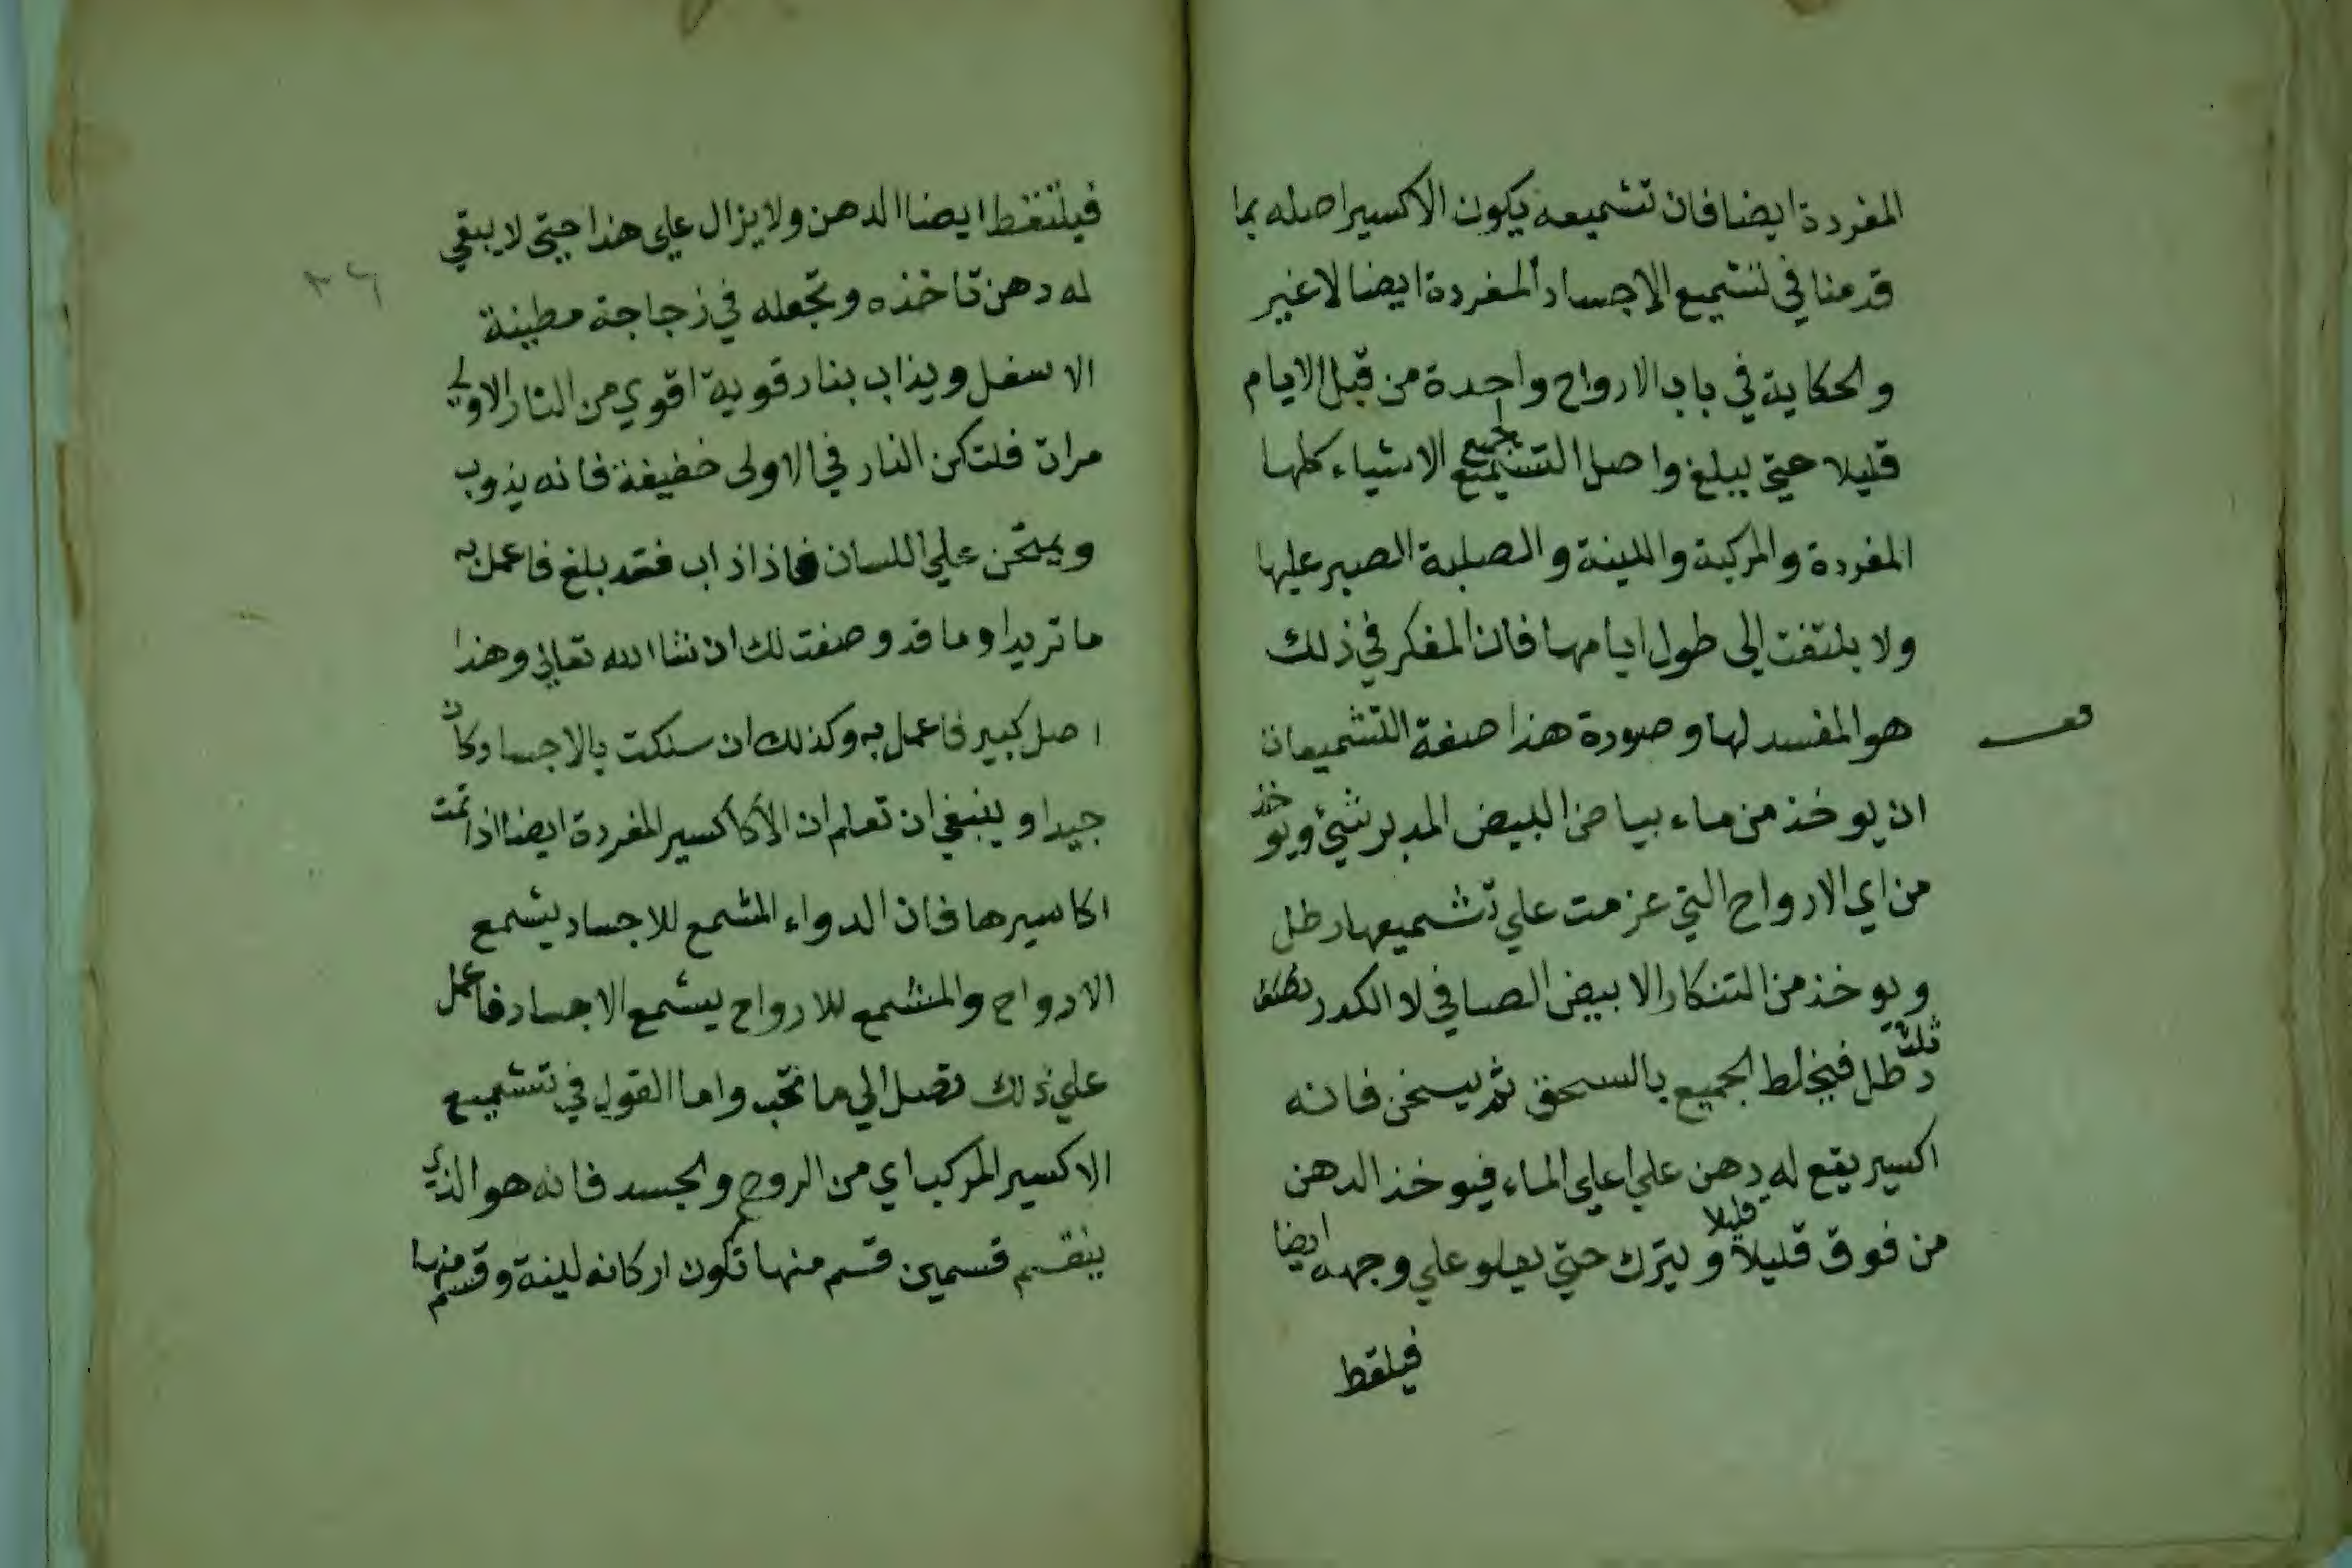 المفردة ايضا فان تشميعه يكون الاكسير اصله بما
قدمنا في تشميع الاجساد المفردة ايضا لا غير
والحكاية في باب الارواح واحدة من قبل الايام
قليلا حتي يبلغ واصل التشميع لجميع الاشياء كلها
المفردة والمركبة واللينة والصلبة الصبر عليها
ولا يلتفت الى طول ايامها فان المفكر في ذلك
هو المفسد لها وصورة هذا صفة التشميعات
ان يوخذ من ماء بياض البيض المدبر شئ ويوخذ
من اي الارواح التي عزمت علي تشميعها رطل
ويوخذ من التنكار الابيض الصافي لا الكدر
ثلث رطل فيخلط الجميع بالسحق ثم يسخن فانه
اكسير يقع له دهن علي اعلي الماء فيوخذ الدهن
من فوق قليلا قليلا ويترك حتي يعلو علي وجهه ايضا
فيلقط
فيلتقط ايضا الدهن ولا يزال علي هذا حتي لا يبقي
له دهن تاخذه وتجعله في زجاجة مطينة
الاسفل ويذاب بنار قوية اقوي من النار الاولي
مرات فلتكن النار في الاولى خفيفة فانه يذوب
ويمتحن علي اللسان فاذا ذاب فقد بلغ فاعمل به
ما تريد او ما قد وصفت لك ان شا الله تعالي وهذا
اصل كبير فاعمل به وكذلك ان سلكت بالاجساد كان
جيدا وينبغي ان تعلم ان الاكاكسير المفردة ايضا اذا تمت
اكاسيرها فان الدواء المشمع للاجساد يشمع
الارواح والمشمع للارواح يشمع الاجساد فاعمل
علي ذلك تصل الي ما تحب واما القول في تشميع
الاكسير المركب اي من الروح والجسد فانه هو الذي
ينقسم قسمين قسم منها تكون اركانه لينة وقسم منها